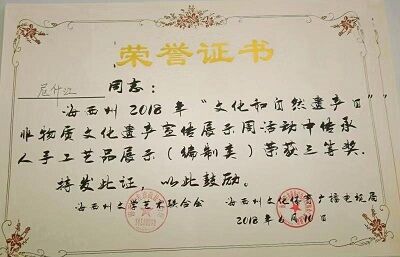 荣誉证书
尼什江 同志：
海西州2018年“文化和自然遗产日”
非物质文化遗产宣传展示周活动中传承
人手工艺品展示（编制类）荣获三等奖.
特发此证，以此鼓励。
海西州文学艺术联合会 海西州文化体育广播电视局
2018年6月10日